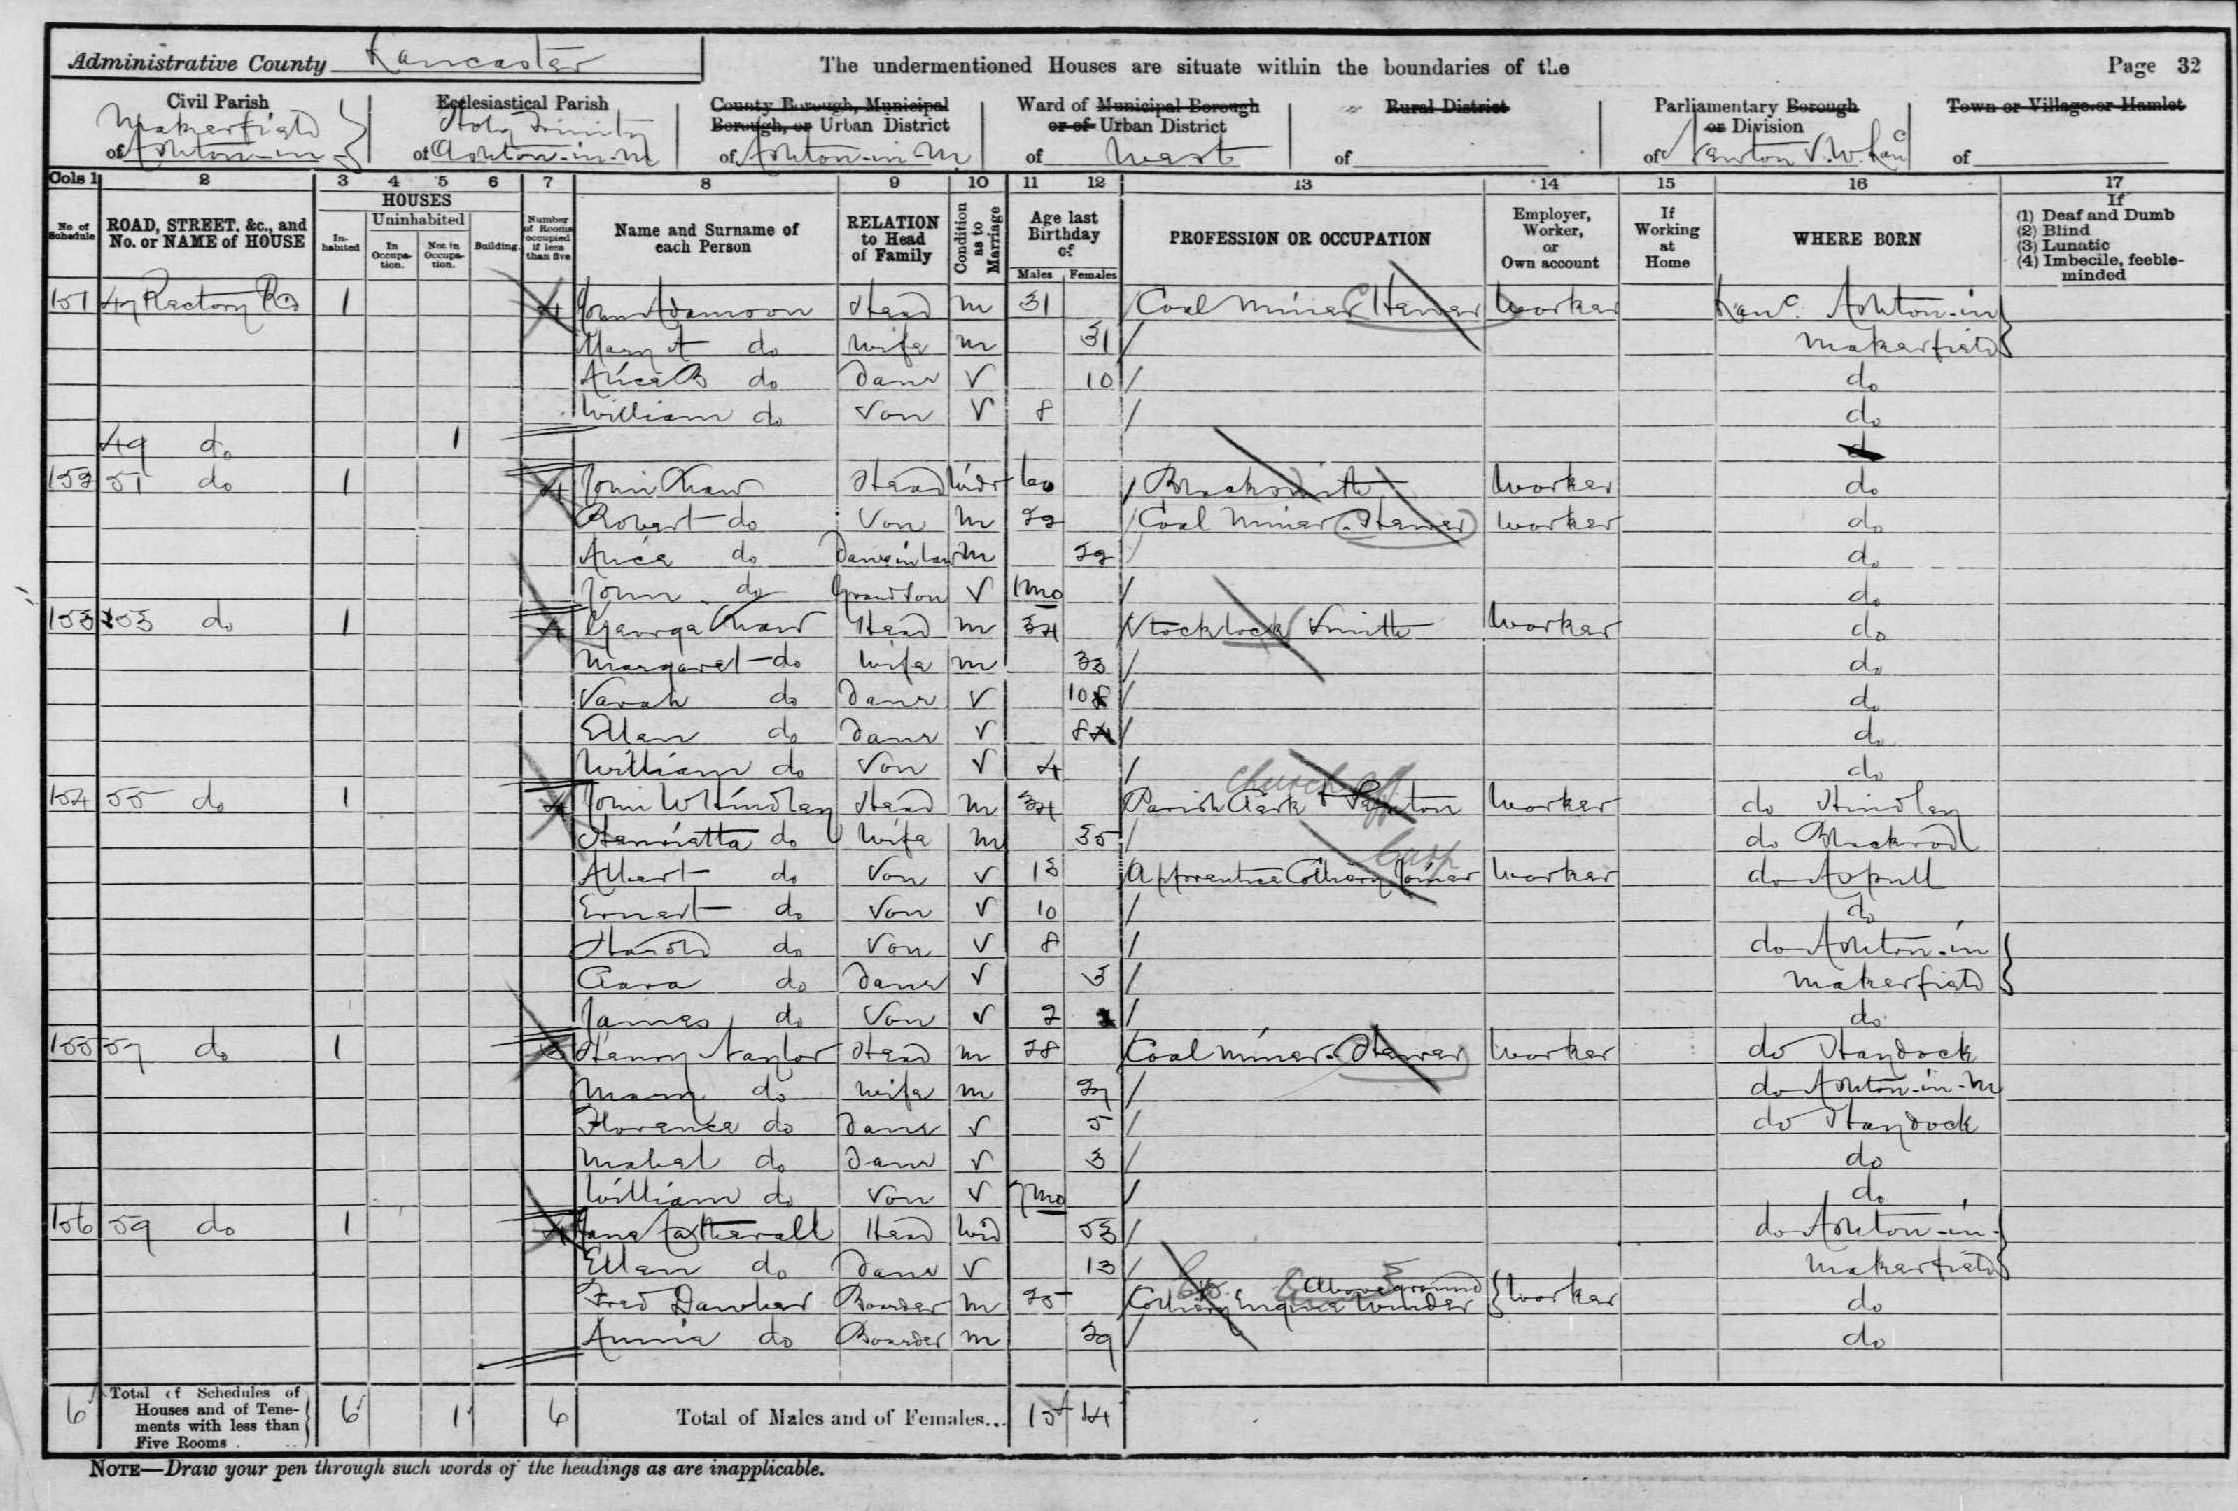 Administrative County Lancaster
The undermentioned Houses are situate within the boundaries of the
Page 32
Civil Parish of Ashton-in Makerfield
Ecclesiastical Parish of Holy Trinity Ashton-in-M
County Borough, Municipal Borough, or Urban District of Ashton-in-M
Ward of Municipal Borough or of Urban District of West
Rural District of
Parliamentary Borough or Division of Newton S.W. Lanc
Town or Village or Hamlet of
Cols 1 2 3 4 5 6 7 8 9 10 11 12 13 14 15 16 17
No. of Schedule
ROAD, STREET, &c., and No. or NAME of HOUSE
HOUSES
Inhabited
Uninhabited
In Occupation.
Not in Occupation.
Building.
Number of Rooms occupied if less than five
Name and Surname of each Person
RELATION to Head of Family
Condition as to Marriage
Age last Birthday of
Males Females
PROFESSION OR OCCUPATION
Employer, Worker, or Own account
If Working at Home
WHERE BORN
If
(1) Deaf and Dumb
(2) Blind
(3) Lunatic
(4) Imbecile, feeble-minded
151 47 Rectory Rd 1 4 John Adamson Head M 31 Coal Miner Hewer Worker Lanc. Ashton-in
Mary A do Wife M 31 Makerfield
Alice B do Daur S 10 do
William do Son S 8 do
49 do 1 do
152 51 do 1 4 John Shaw Head Widr 60 Blacksmith Worker do
Robert do Son M 22 Coal Miner. Hewer Worker do
Alice do Daur in law M 22 do
John do Grandson S 1 mo do
153 53 do 1 4 George Shaw Head M 34 Stocklock Smith Worker do
Margaret do Wife M 33 do
Sarah do Daur S 10 do
Ellen do Daur S 8 do
William do Son S 4 do
154 55 do 1 4 John W Hindley Head M 34 Parish Clerk & Sexton Church Off Worker do Hindley
Henrietta do Wife M 35 do Blackrod
Albert do Son S 13 Apprentice Colliery Joiner Carp Worker do Aspull
Ernest do Son S 10 do
Harold do Son S 8 do Ashton-in
Clara do Daur S 3 Makerfield
James do Son S 2 do
155 57 do 1 Henry Naylor Head M 28 Coal Miner. Hewer Worker do Haydock
Mary do Wife M 27 do Ashton-in-M
Florence do Daur S 5 do Haydock
Mabel do Daur S 3 do
William do Son S 7 mo do
156 59 do 1 4 Jane Catherall Head Wid 53 do Ashton-in
Ellen do Daur S 13 Makerfield
Above ground
Fred Dawber Boarder M 25 Colliery Engine Winder Worker do
Annie do Boarder M 29 do
6 Total of Schedules of Houses and of Tenements with less than Five Rooms 6 1 6 Total of Males and of Females... 15 14
NOTE—Draw your pen through such words of the headings as are inapplicable.